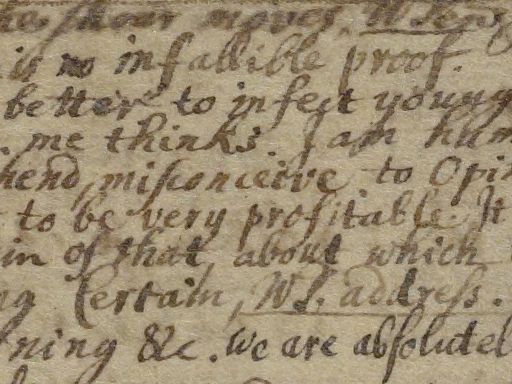 is no infallible proof.
better to infect young
. me thinks. I am hum
hend, misconceive, to Opin
to be very profitable. It
in of that, about which
ng Certain, Ws. address.
ning &c. we are absolutel